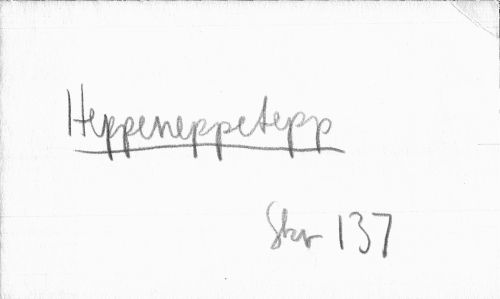 Heppeneppetepp
Skr 137